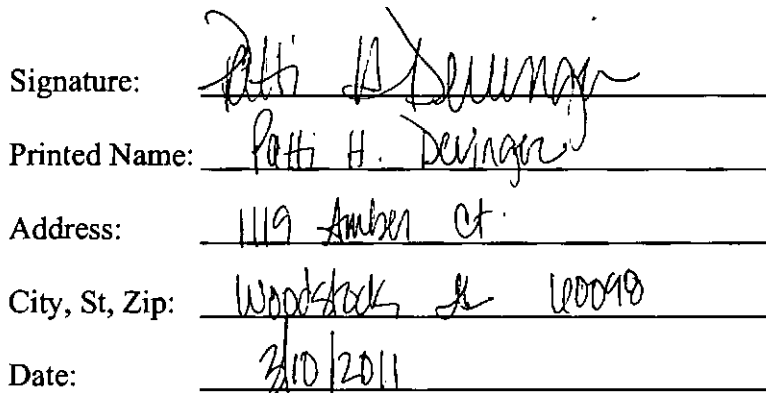 Signature: Patti H Devinger
Printed Name: Patti H. Devinger
Address: 1119 Amber Ct.
City, St, Zip: Woodstock, IL 60098
Date: 3/10/2011